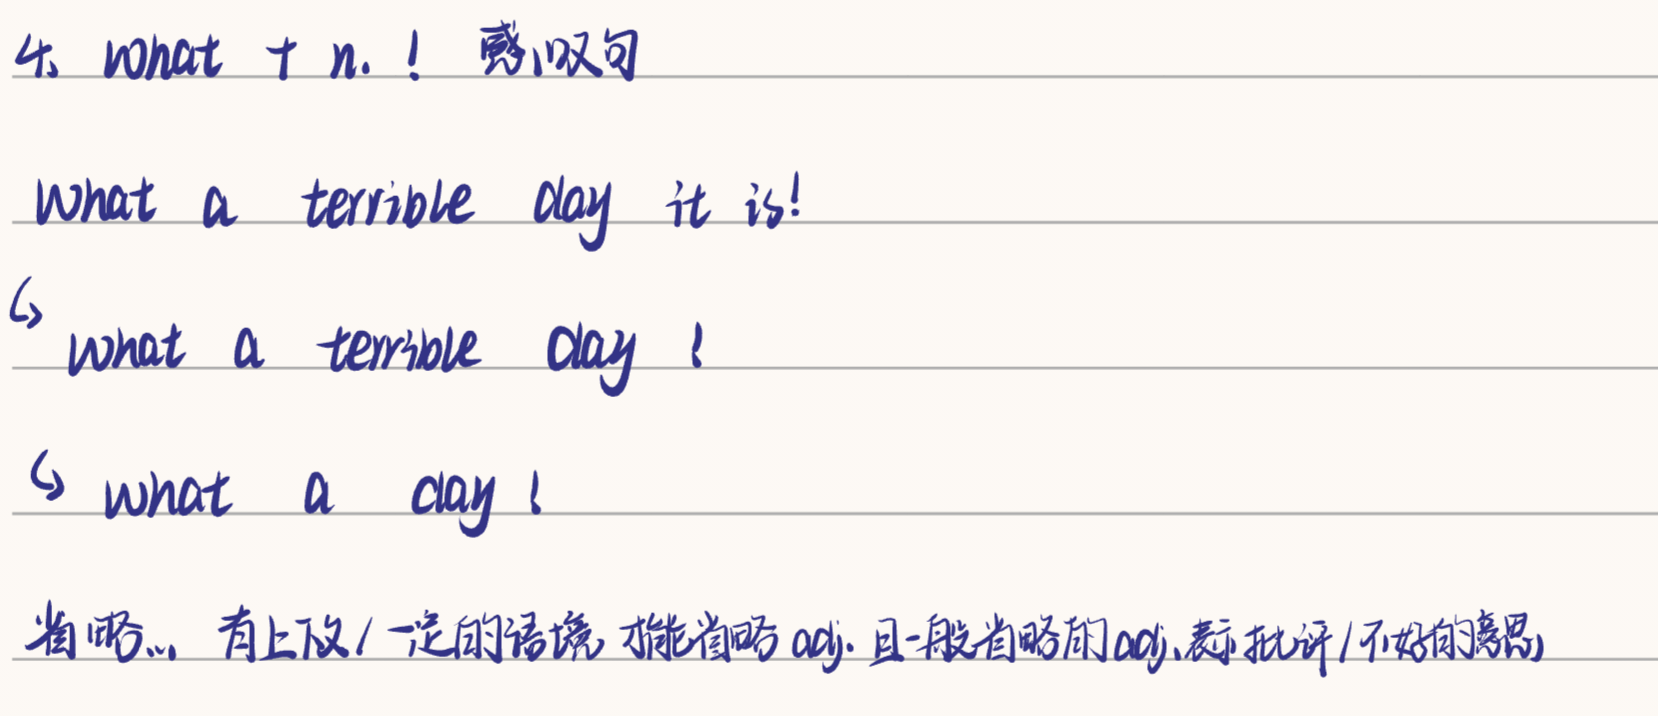 4、 what + n. ! 感叹句
What a terrible day it is!
↳ what a terrible day !
↳ what a day !
省略... 有上下文/一定的语境,才能省略 adj. 且一般省略的 adj、表示 批评/不好的意思,